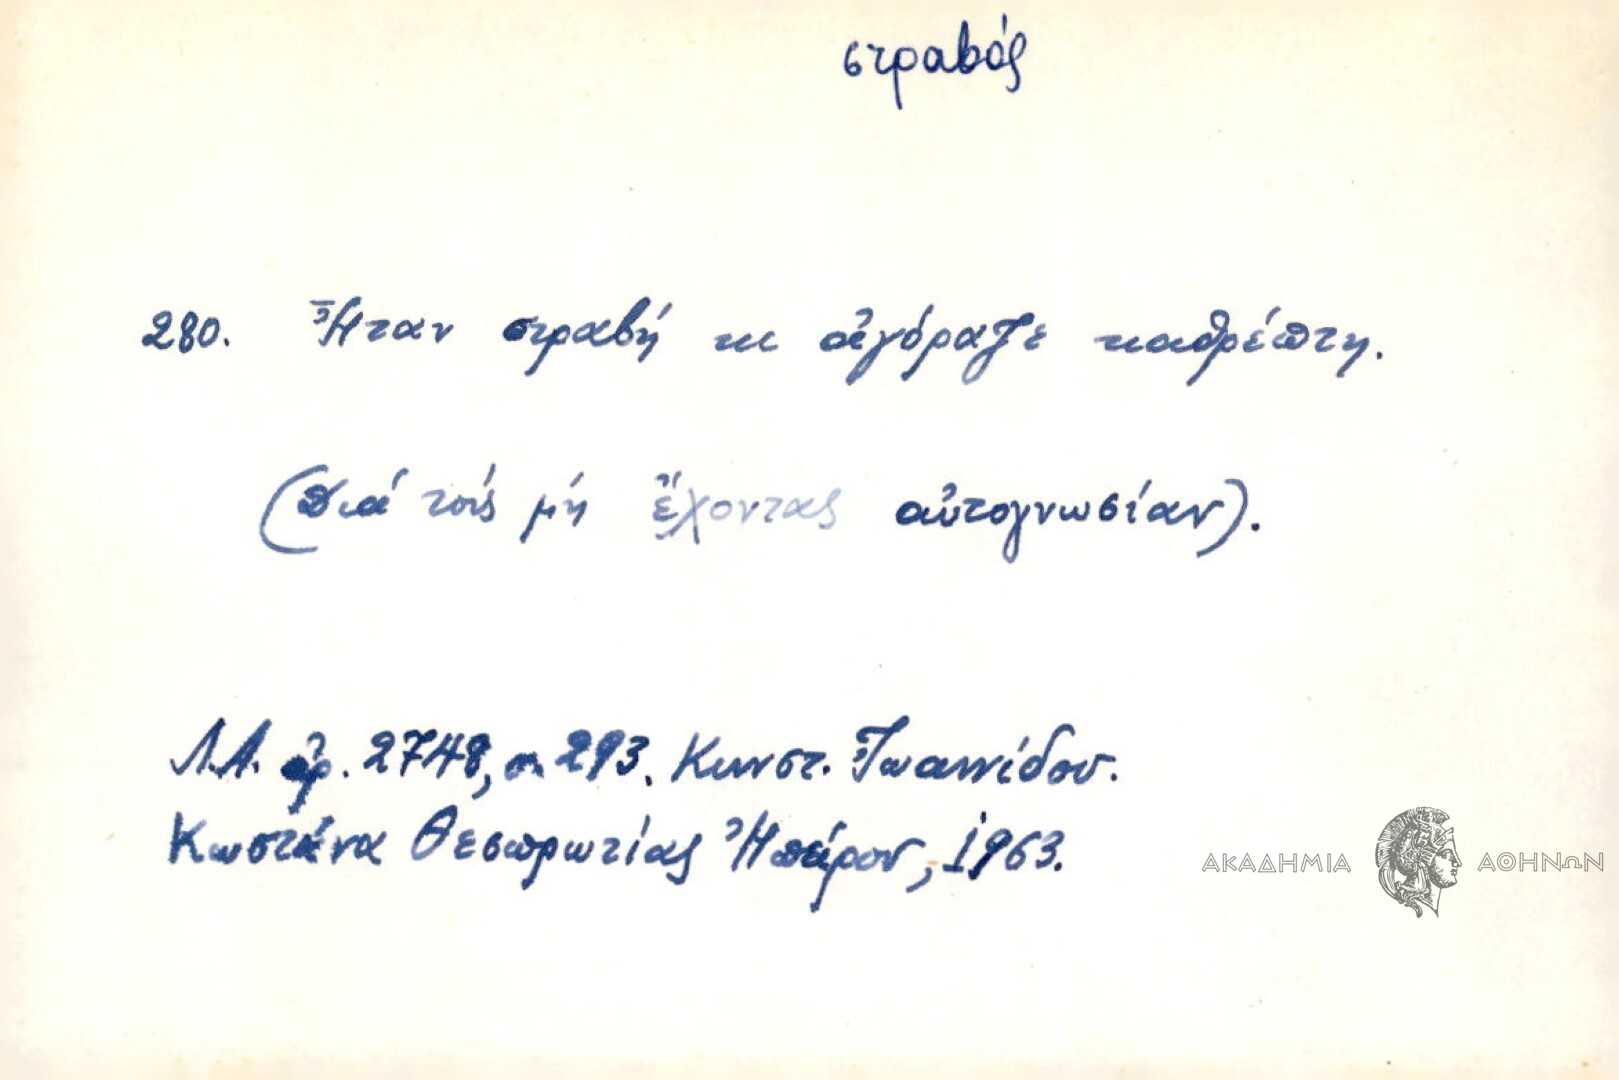 στραβός
280. Ἦταν στραβή κι ἀγόραζε καθρέπτη.
(Διά τούς μή ἔχοντας αὐτογνωσίαν).
Λ.Α. ἀρ. 2748, σ. 293. Κωνστ. Ἰωαννίδου.
Κωστάνα Θεσπρωτίας Ἠπείρου, 1963.
ΑΚΑΔΗΜΙΑ ΑΘΗΝΩΝ